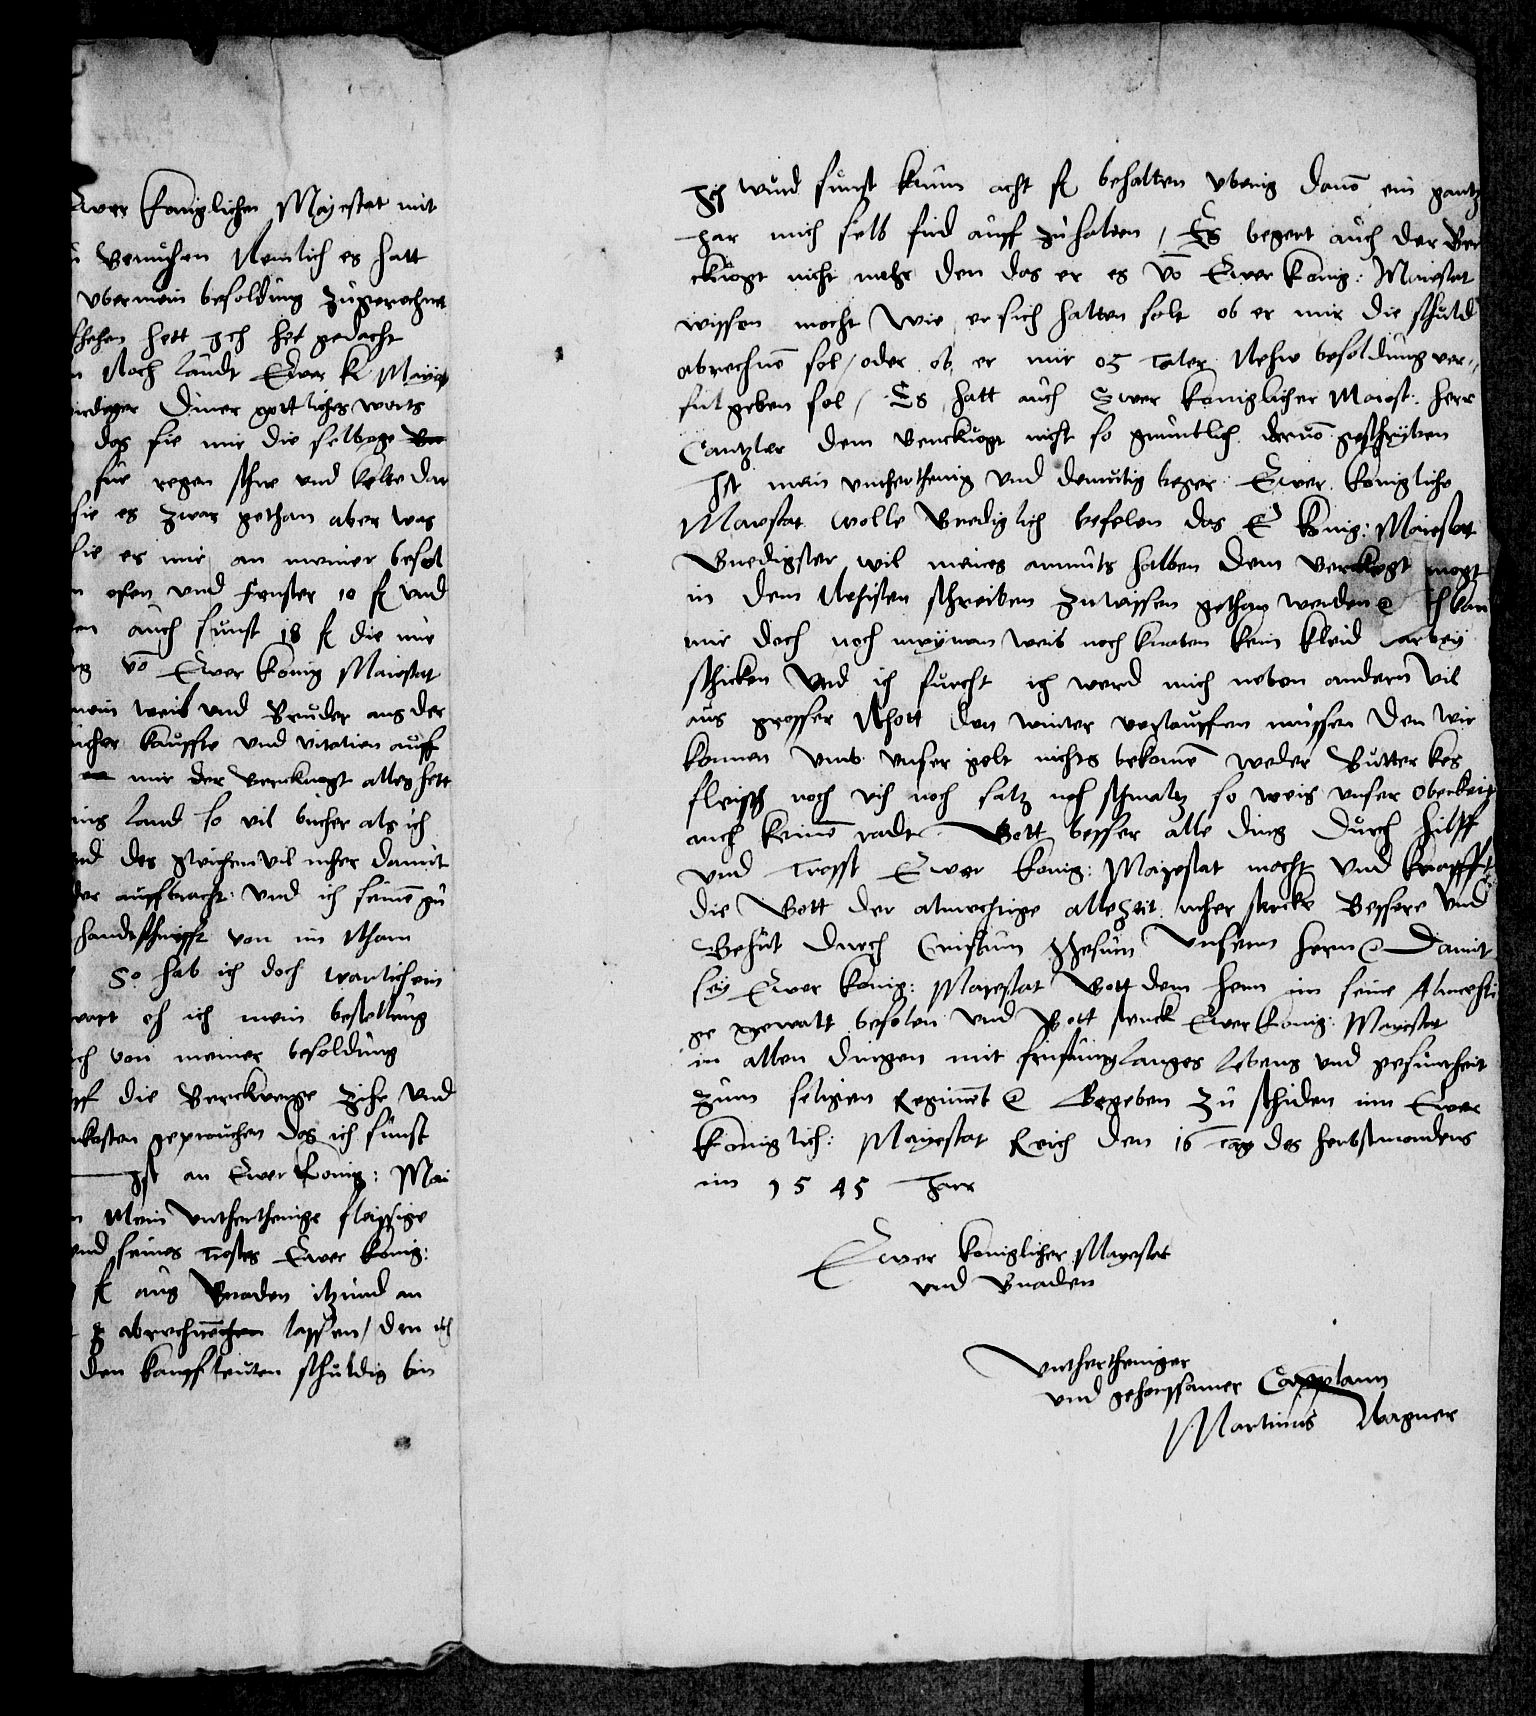 Ewer koniglichen Mayestat mit
Nemlich es hatt
vber mein besoldung zugerechnet
hett Jch het gedacht
Noch landt Ewer K May
diner gottliches worts
das sie mir die selbege
fur regen schne und kelte dar
sie es zwar gethan aber was
sie es mir an meiner besol
ofen und Fenster 10 fl und
auch sunst 18 fl die mir
vō Ewer konig Maiestat
mein weib und Bruder aus der
kauffte und vitalien auff
mir der Berckuogt alles hett
ins land so vil bucher als ich
des gleichen vil mher damit
auffbracht und ich
handtschryfft von im Nham
So hab ich doch warlich ein
eh ich mein bestellung
von meiner besoldung
die Berckwerge zihe und
das ich sunst
Jst an Ewer konig: Mai
Mein unthertheinige fleyssige
und seines trostes Ewer konig:
fl aus Gnaden itzund an
lassen / den ich
den kauffleuten schuldig bin
Jch wurd sunst kaum acht fl behalten vberig dauō ein gantz
Jar mich selb find auff zuhalten / Es begert auch der Ber
ckuogt nicht mehr den das er es vō Ewer konig: Maiestat
wissen mocht wie er sich halten solt ob er mir die schuld
abrechnē sol / oder ob er mir 05 taler Nehw besoldung ver
geben sol / Es hatt auch Ewer koniglicher Maiest: herr
Cantzler dem Berckuogt nicht so gruntlich daruō geschryben
Jst mein unthertheinig und demutig beger Ewer konigliche
Maiestat wolle Gnediglich befelen das E konig: Maiestat
Gnedigster wil meines armuts halben dem Berckuogt mogt
in dem Nehisten schreiben zuwissen gethan werden Jch kan
mir doch noch meynem weib noch knaben kein kleid
schicken Und ich furcht ich werd mich neben andern vil
aus grosser Nhott den winter verlauffen mussen Den wir
konnen umb unser gelt nichts bekomē weder Butter kes
fleisch noch vich noch saltz noch schmaltz so weis unser Oberkeit
auch keinē radt Gott besser alle ding Durch hilff
und trost Ewer konig: Mayestat macht und krafft
die Gott der almechtige allezeit mher stercke Bessere und
Behut durch Cristum Jhesum Unsern hern Damit
sey Ewer konig: Mayestat Gott dem hern im seine Almechti
ge gewalt befolen und Gott sterck Ewer konig Mayestat
in allen dingen mit fristung langes lebens und gesuntheit
zum seligen Regimēt Gegeben zu inn Ewer
koniglich: Mayestat Reich den 16 tag des herbstmonders
im 1545 Jarr
Ewer koniglicher Mayestat
und Gnaden
Unthertheniger
und gehorssamer Capplann
Martinus Wagner